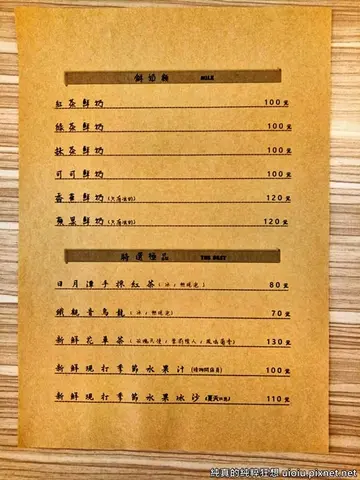 鮮奶類 MILK
紅茶鮮奶 100元
綠茶鮮奶 100元
抹茶鮮奶 100元
可可鮮奶 100元
香蕉鮮奶(只有冰的) 120元
蘋果鮮奶(只有冰的) 120元
特選極品 THE BEST
日月潭手採紅茶(冰/熱現泡) 80元
鐵觀音烏龍(冰/熱現泡) 70元
新鮮花草茶(玫瑰天使/紫羅蘭人/風味菊香) 130元
新鮮現打季節水果汁(請詢問店員) 100元
新鮮現打季節水果冰沙(夏天限定) 110元
純真的純粹狂想 uioiu.pixnet.net